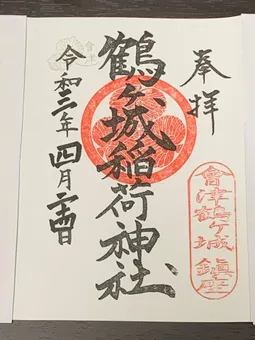 奉拝
會津鶴ヶ城 鎮座
鶴ヶ城稲荷神社
令和二年四月二十四日
會津